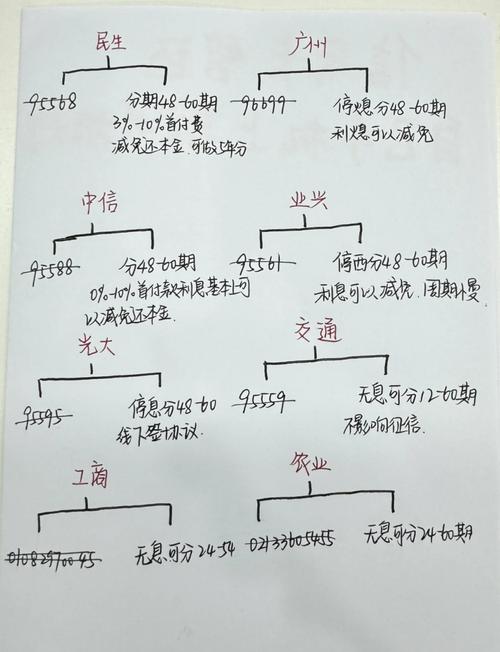 民生
95568
分期48-60期
3%-10%首付费
减免还本金.可做5年分
广州
96699
停熄分48-60期
利熄可以减免
中信
95588
分48-60期
0%-10%首付款利息基本上可
以减免还本金.
业兴
95561
停西分48-60期
利息可以减免.周期慢
光大
95595
停息分48-60
线下签协议.
交通
95559
无息可分12-60期
不影响征信.
工商
01082970045
无息可分24-54
农业
02133605455
无息可分24-60期